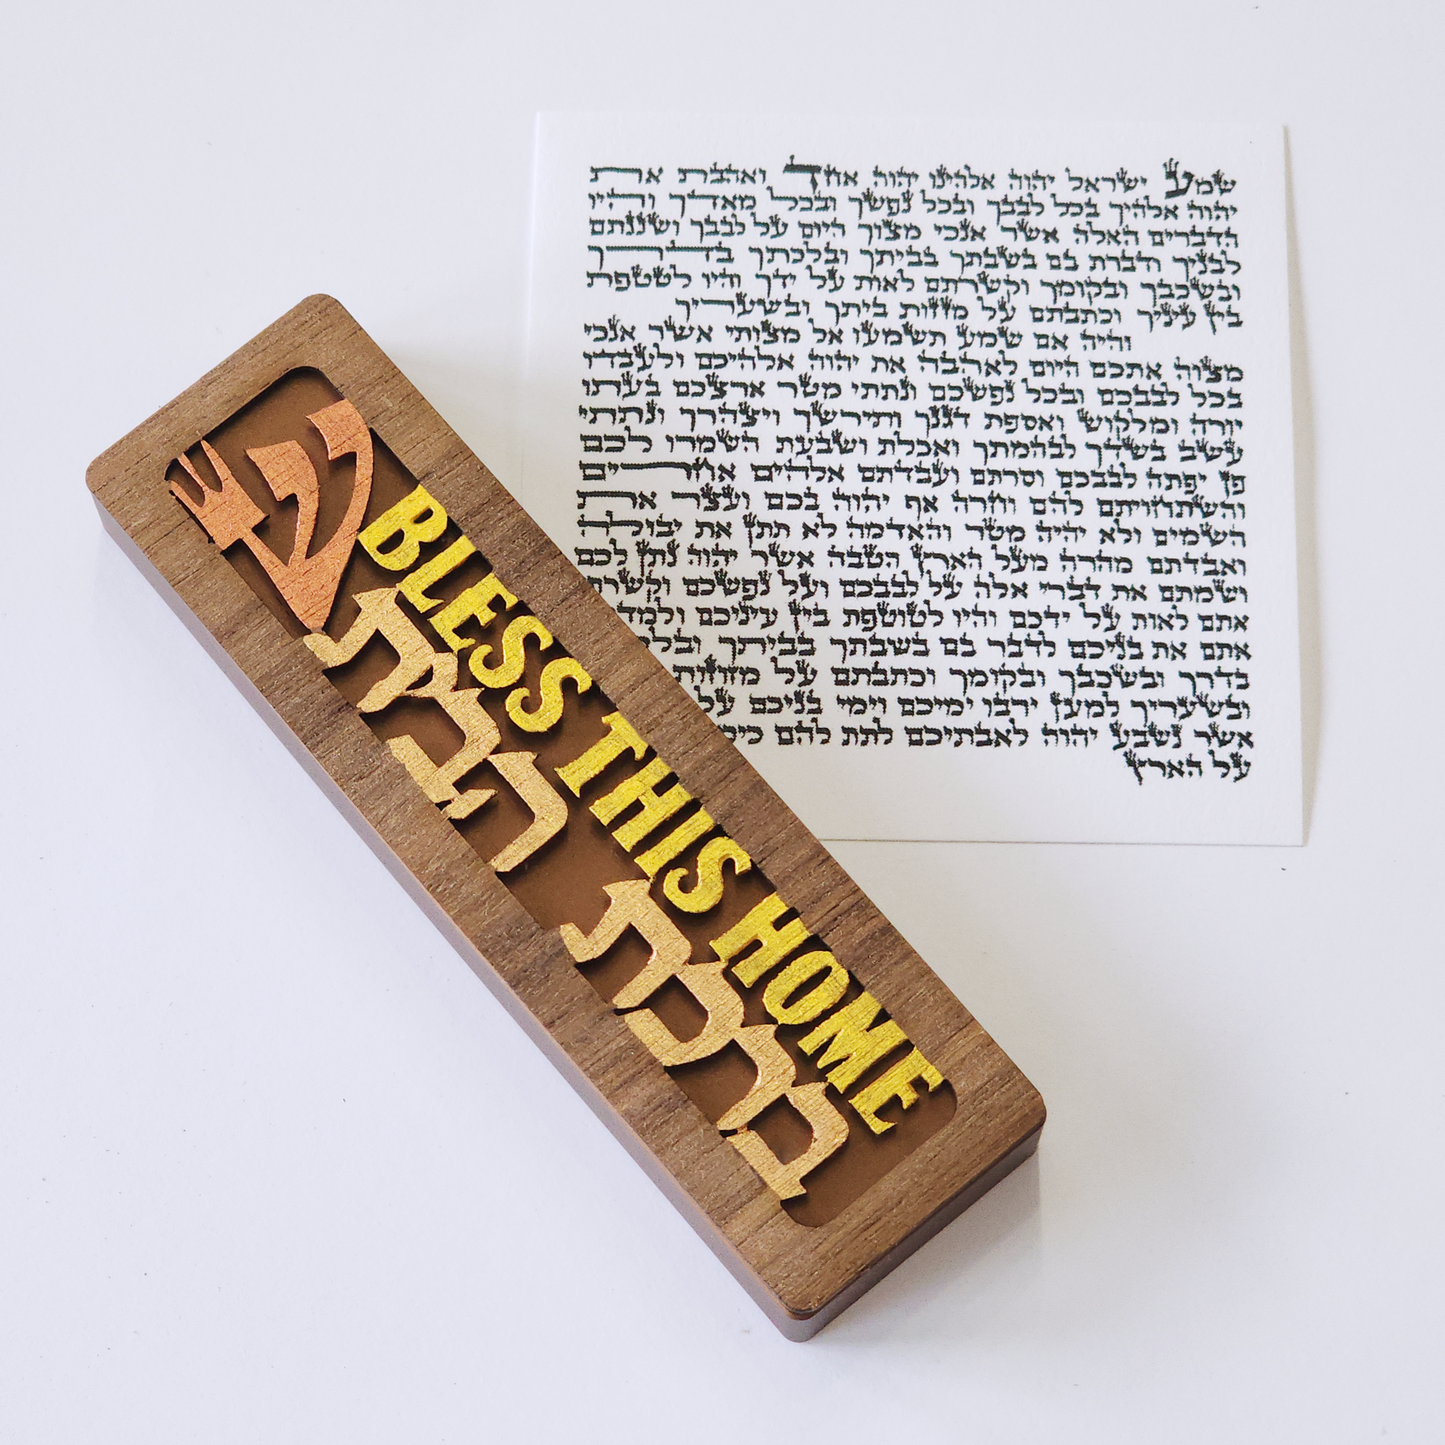 שמע ישראל יהוה אלהינו יהוה אחד ואהבת את
יהוה אלהיך בכל לבבך ובכל נפשך ובכל מאדך והיו
הדברים האלה אשר אנכי מצוך היום על לבבך ושננתם
לבניך ודברת בם בשבתך בביתך ובלכתך בדרך
ובשכבך ובקומך וקשרתם לאות על ידך והיו לטטפת
בין עיניך וכתבתם על מזזות ביתך ובשעריך
והיה אם שמע תשמעו אל מצותי אשר אנכי
מצוה אתכם היום לאהבה את יהוה אלהיכם ולעבדו
בכל לבבכם ובכל נפשכם ונתתי מטר ארצכם בעתו
יורה ומלקוש ואספת דגנך ותירשך ויצהרך ונתתי
עשב בשדך לבהמתך ואכלת ושבעת השמרו לכם
פן יפתה לבבכם וסרתם ועבדתם אלהים אחרים
והשתחויתם להם וחרה אף יהוה בכם ועצר את
השמים ולא יהיה מטר והאדמה לא תתן את יבולה
ואבדתם מהרה מעל הארץ הטבה אשר יהוה נתן לכם
ושמתם את דברי אלה על לבבכם ועל נפשכם
אתם לאות על ידכם והיו לטוטפת בין עיניכם
אתם את בניכם לדבר בם בשבתך בביתך
בדרך ובשכבך ובקומך וכתבתם על מזוזות
ובשעריך למען ירבו ימיכם וימי בניכם על
אשר נשבע יהוה לאבתיכם לתת להם
על הארץ
ש
BLESS THIS HOME
ברכת הבית